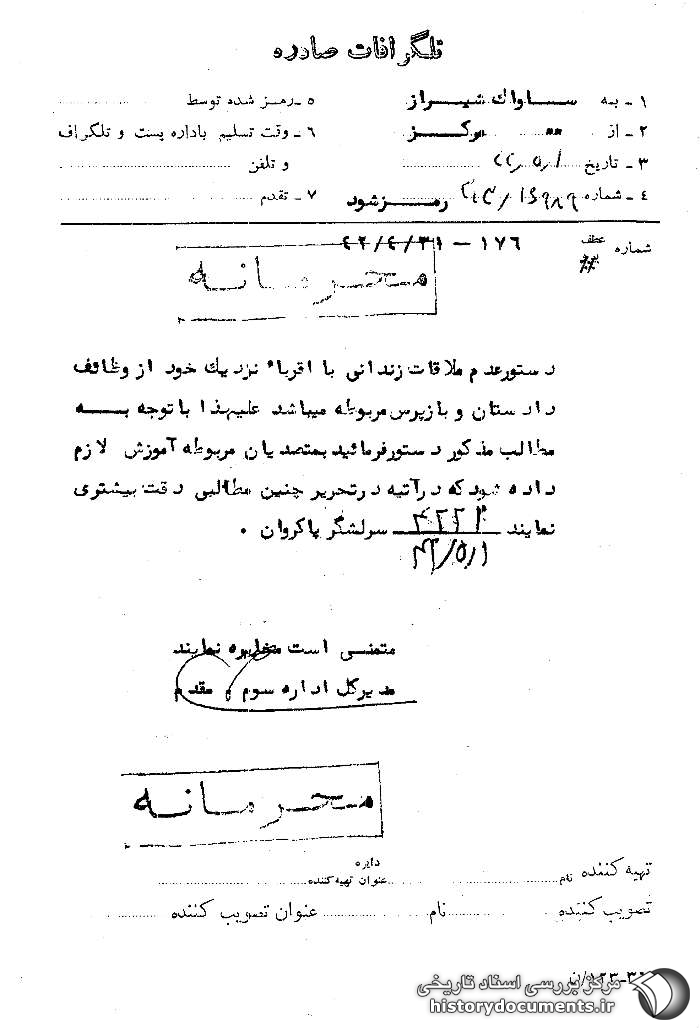 تلگرافات صادره
۱ ـ به ساواك شیراز
۵ ـ رمز شده توسط
۲ ـ از " مركز
۶ ـ وقت تسلیم باداره پست و تلگراف و تلفن
۳ ـ تاریخ ۴۲/۵/۱
۴ ـ شماره رمزشود
۷ ـ تقدم
شماره عطف ۱۷۶ – ۴۲/۴/۳۱
محرمانه
دستورعدم ملاقات زندانی با اقرباء نزدیك خود از وظائف
دادستان و بازپرس مربوطه میباشد علیهذا با توجه به
مطالب مذكور دستورفرمائید بمتصدیان مربوطه آموزش لازم
داده شود كه درآتیه درتحریر چنین مطالبی دقت بیشتری
نمایند ۳۲۲۲ سرلشگر پاكروان .
۴۲/۵/۱
متمنی است مخابره نمایند
مدیركل اداره سوم ، مقدم
محرمانه
تهیه كننده نام دایره عنوان تهیه كننده
تصویب كننده نام عنوان تصویب كننده
مرکز بررسی اسناد تاریخی
historydocuments.ir